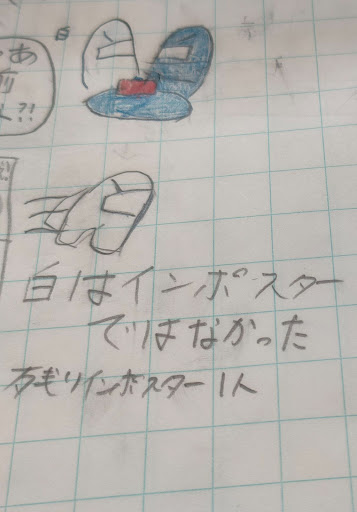 白
あ
人?!
白はインポスター
ではなかった
残りインポスター1人